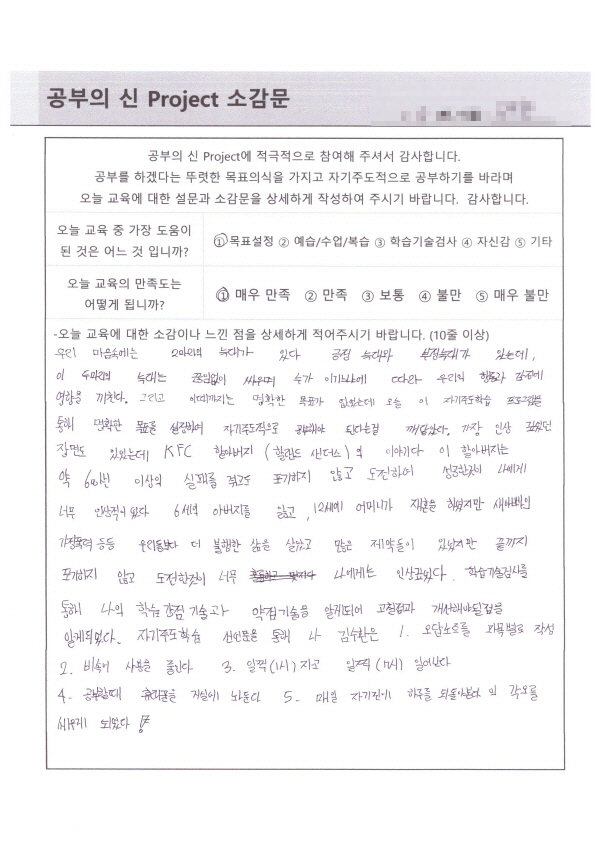 공부의 신 Project 소감문
공부의 신 Project에 적극적으로 참여해 주셔서 감사합니다.
공부를 하겠다는 뚜렷한 목표의식을 가지고 자기주도적으로 공부하기를 바라며
오늘 교육에 대한 설문과 소감문을 상세하게 작성하여 주시기 바랍니다. 감사합니다.
오늘 교육 중 가장 도움이
된 것은 어느 것 입니까?
① 목표설정 ② 예습/수업/복습 ③ 학습기술검사 ④ 자신감 ⑤ 기타
오늘 교육의 만족도는
어떻게 됩니까?
① 매우 만족 ② 만족 ③ 보통 ④ 불만 ⑤ 매우 불만
-오늘 교육에 대한 소감이나 느낀 점을 상세하게 적어주시기 바랍니다. (10줄 이상)
우리 마음속에는 2마리의 늑대가 있다 긍정 늑대와 부정늑대가 있는데,
이 두마리의 늑대는 끊임없이 싸우며 누가 이기냐에 따라 우리의 행동과 감정에
영향을 끼친다. 그리고 이때까지는 명확한 목표가 없었는데 오늘 이 자기주도학습 프로그램을
통해 명확한 목표를 설정하여 자기주도적으로 공부해야 된다는걸 깨달았다. 가장 인상 깊었던
장면도 있었는데 KFC 할아버지 (할랜드 샌더스)의 이야기다 이 할아버지는
약 600번 이상의 실패를 겪고도 포기하지 않고 도전하여 성공한것이 나에게
너무 인상적이었다 6세때 아버지를 잃고, 12세에 어머니가 재혼을 하셨지만 새아빠의
가정폭력 등등 우리들보다 더 불행한 삶을 살았고 많은 제약들이 있었지만 끝까지
포기하지 않고 도전한것이 너무 나에게는 인상깊었다. 학습기술검사를
통해 나의 학습 강점 기술과 약점기술을 알게되어 고칠점과 개선해야될점을
알게되었다. 자기주도학습 선언문을 통해 나 김수환은 1. 오답노트를 과목별로 작성
2. 비속어 사용을 줄인다 3. 일찍(1시) 자고 일찍(7시) 일어난다
4. 공부할때 휴대폰을 거실에 놔둔다 5. 매일 자기전에 하루를 되돌아본다 의 각오를
세우게 되었다!